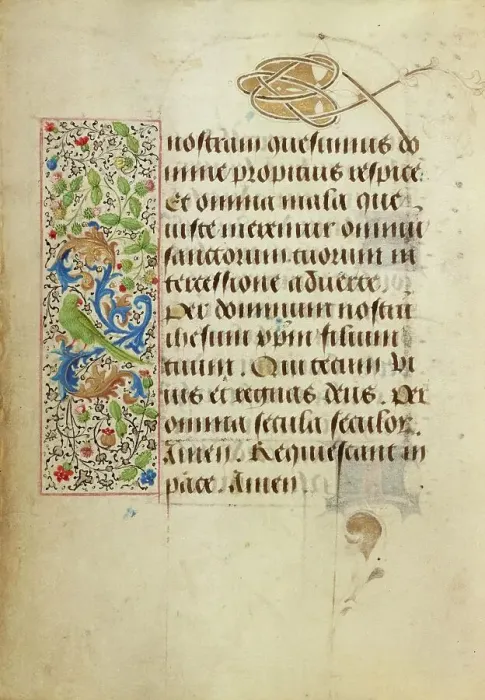 nostram quesumus do
mine propitius respice.
Et omnia mala que
iuste meremur omniū
sanctorum tuorum in
tercessione aduerte.
Per dominum nostrū
ihesum xpm filium
tuum. Qui tecum vi
uis et regnas deus. Per
omnia secula seculor.
Amen. Requiescant in
pace. Amen.